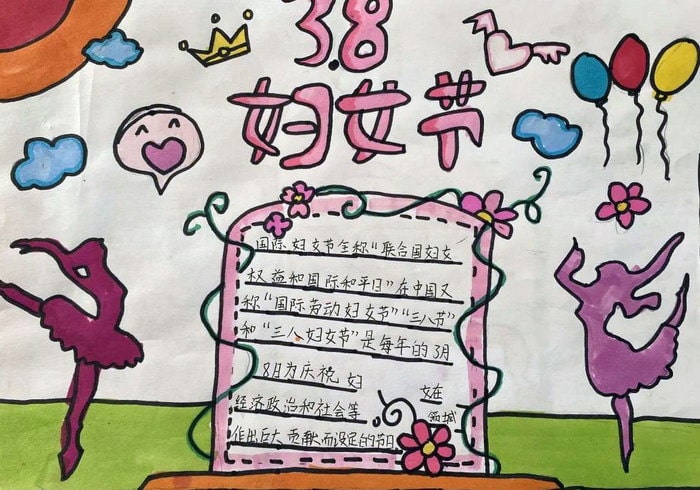 3.8
妇女节
国际妇女节全称“联合国妇女
权益和国际和平日”在中国又
称“国际劳动妇女节”“三八节”
和“三八妇女节”是每年的3月
8月为庆祝 妇 女在
经济政治和社会等 领域
作出巨大贡献而设定的节日